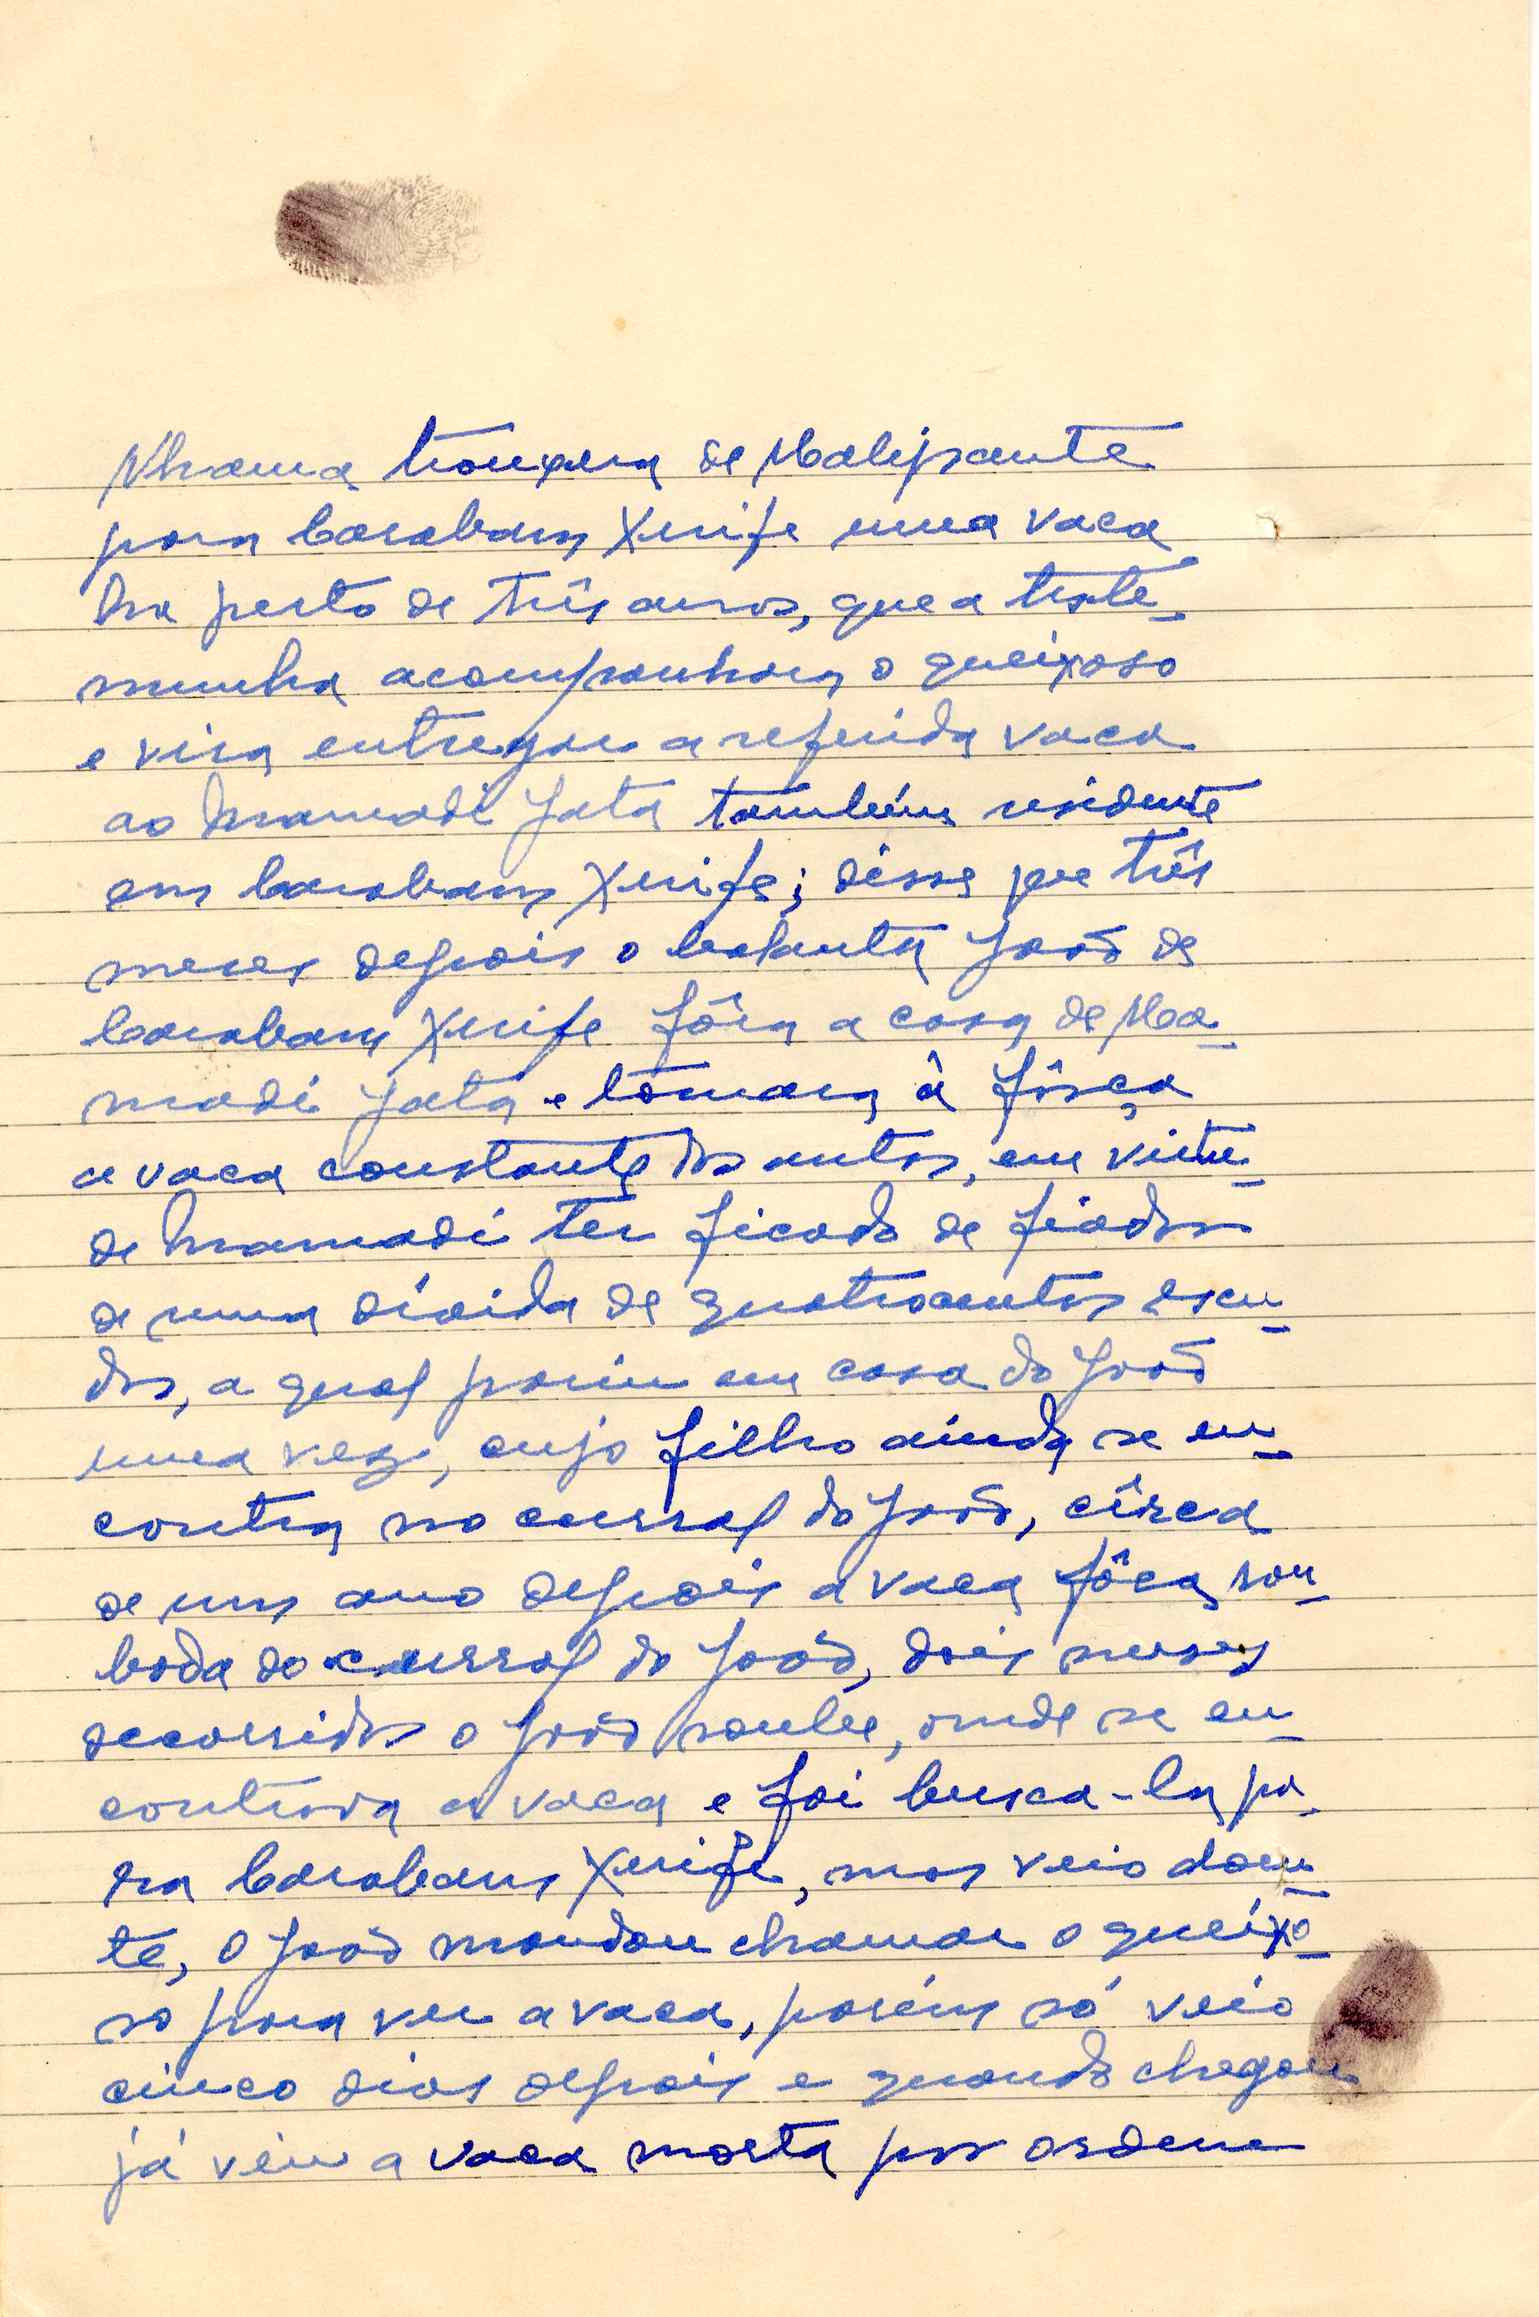 Nhama trouxera de Malipante
para Carabam Xerife uma vaca
ha perto de três anos, que a teste-
munha acompanhara o queixoso
e vira entregar a referida vaca
ao Mamadi Jatá também residente
em Carabam Xerife; disse que três
meses depois o balanta João de
Carabam Xerife fôra a casa de Ma-
madi Jatá e tomara à fôrça
a vaca constante dos autos, em virtu-
de Mamadi ter ficado de fiador
de uma divida de quatrocentos escu-
dos, a qual pariu em casa do João
uma vez, cujo filho ainda se en-
contra no curral do João, cêrca
de um ano depois a vaca fôra rou-
bada do curral do João, dois meses
decorridos o João soube, onde se en-
contrava a vaca e foi busca-la pa-
ra Carabam Xerife, mas veio doen-
te, o João mandou chamar o queixo-
so para ver a vaca, porém só veio
cinco dias depois e quando chegou
já viu a vaca morta por ordem